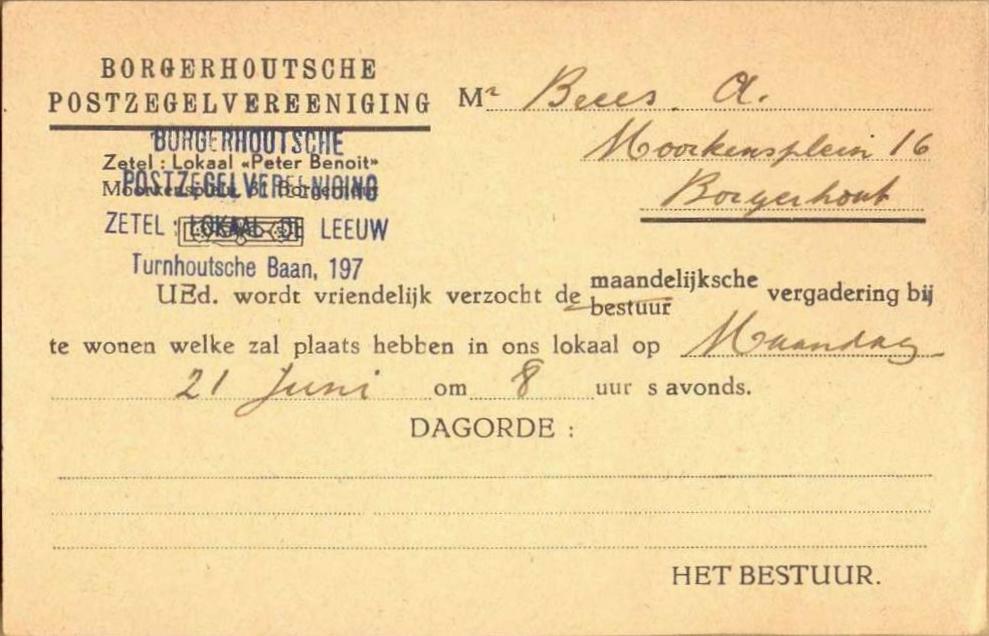 BORGERHOUTSCHE
POSTZEGELVEREENIGING
BORGERHOUTSCHE
Zetel : Lokaal «Peter Benoit»
POSTZEGELVEREENIGING
ZETEL : LOKAAL DE LEEUW
Turnhoutsche Baan, 197
Mr Beees. A.
Moorkensplein 16
Borgerhout
UEd. wordt vriendelijk verzocht de maandelijksche vergadering bij
bestuur
te wonen welke zal plaats hebben in ons lokaal op Maandag
21 Juni om 8 uur s avonds.
DAGORDE :
HET BESTUUR.